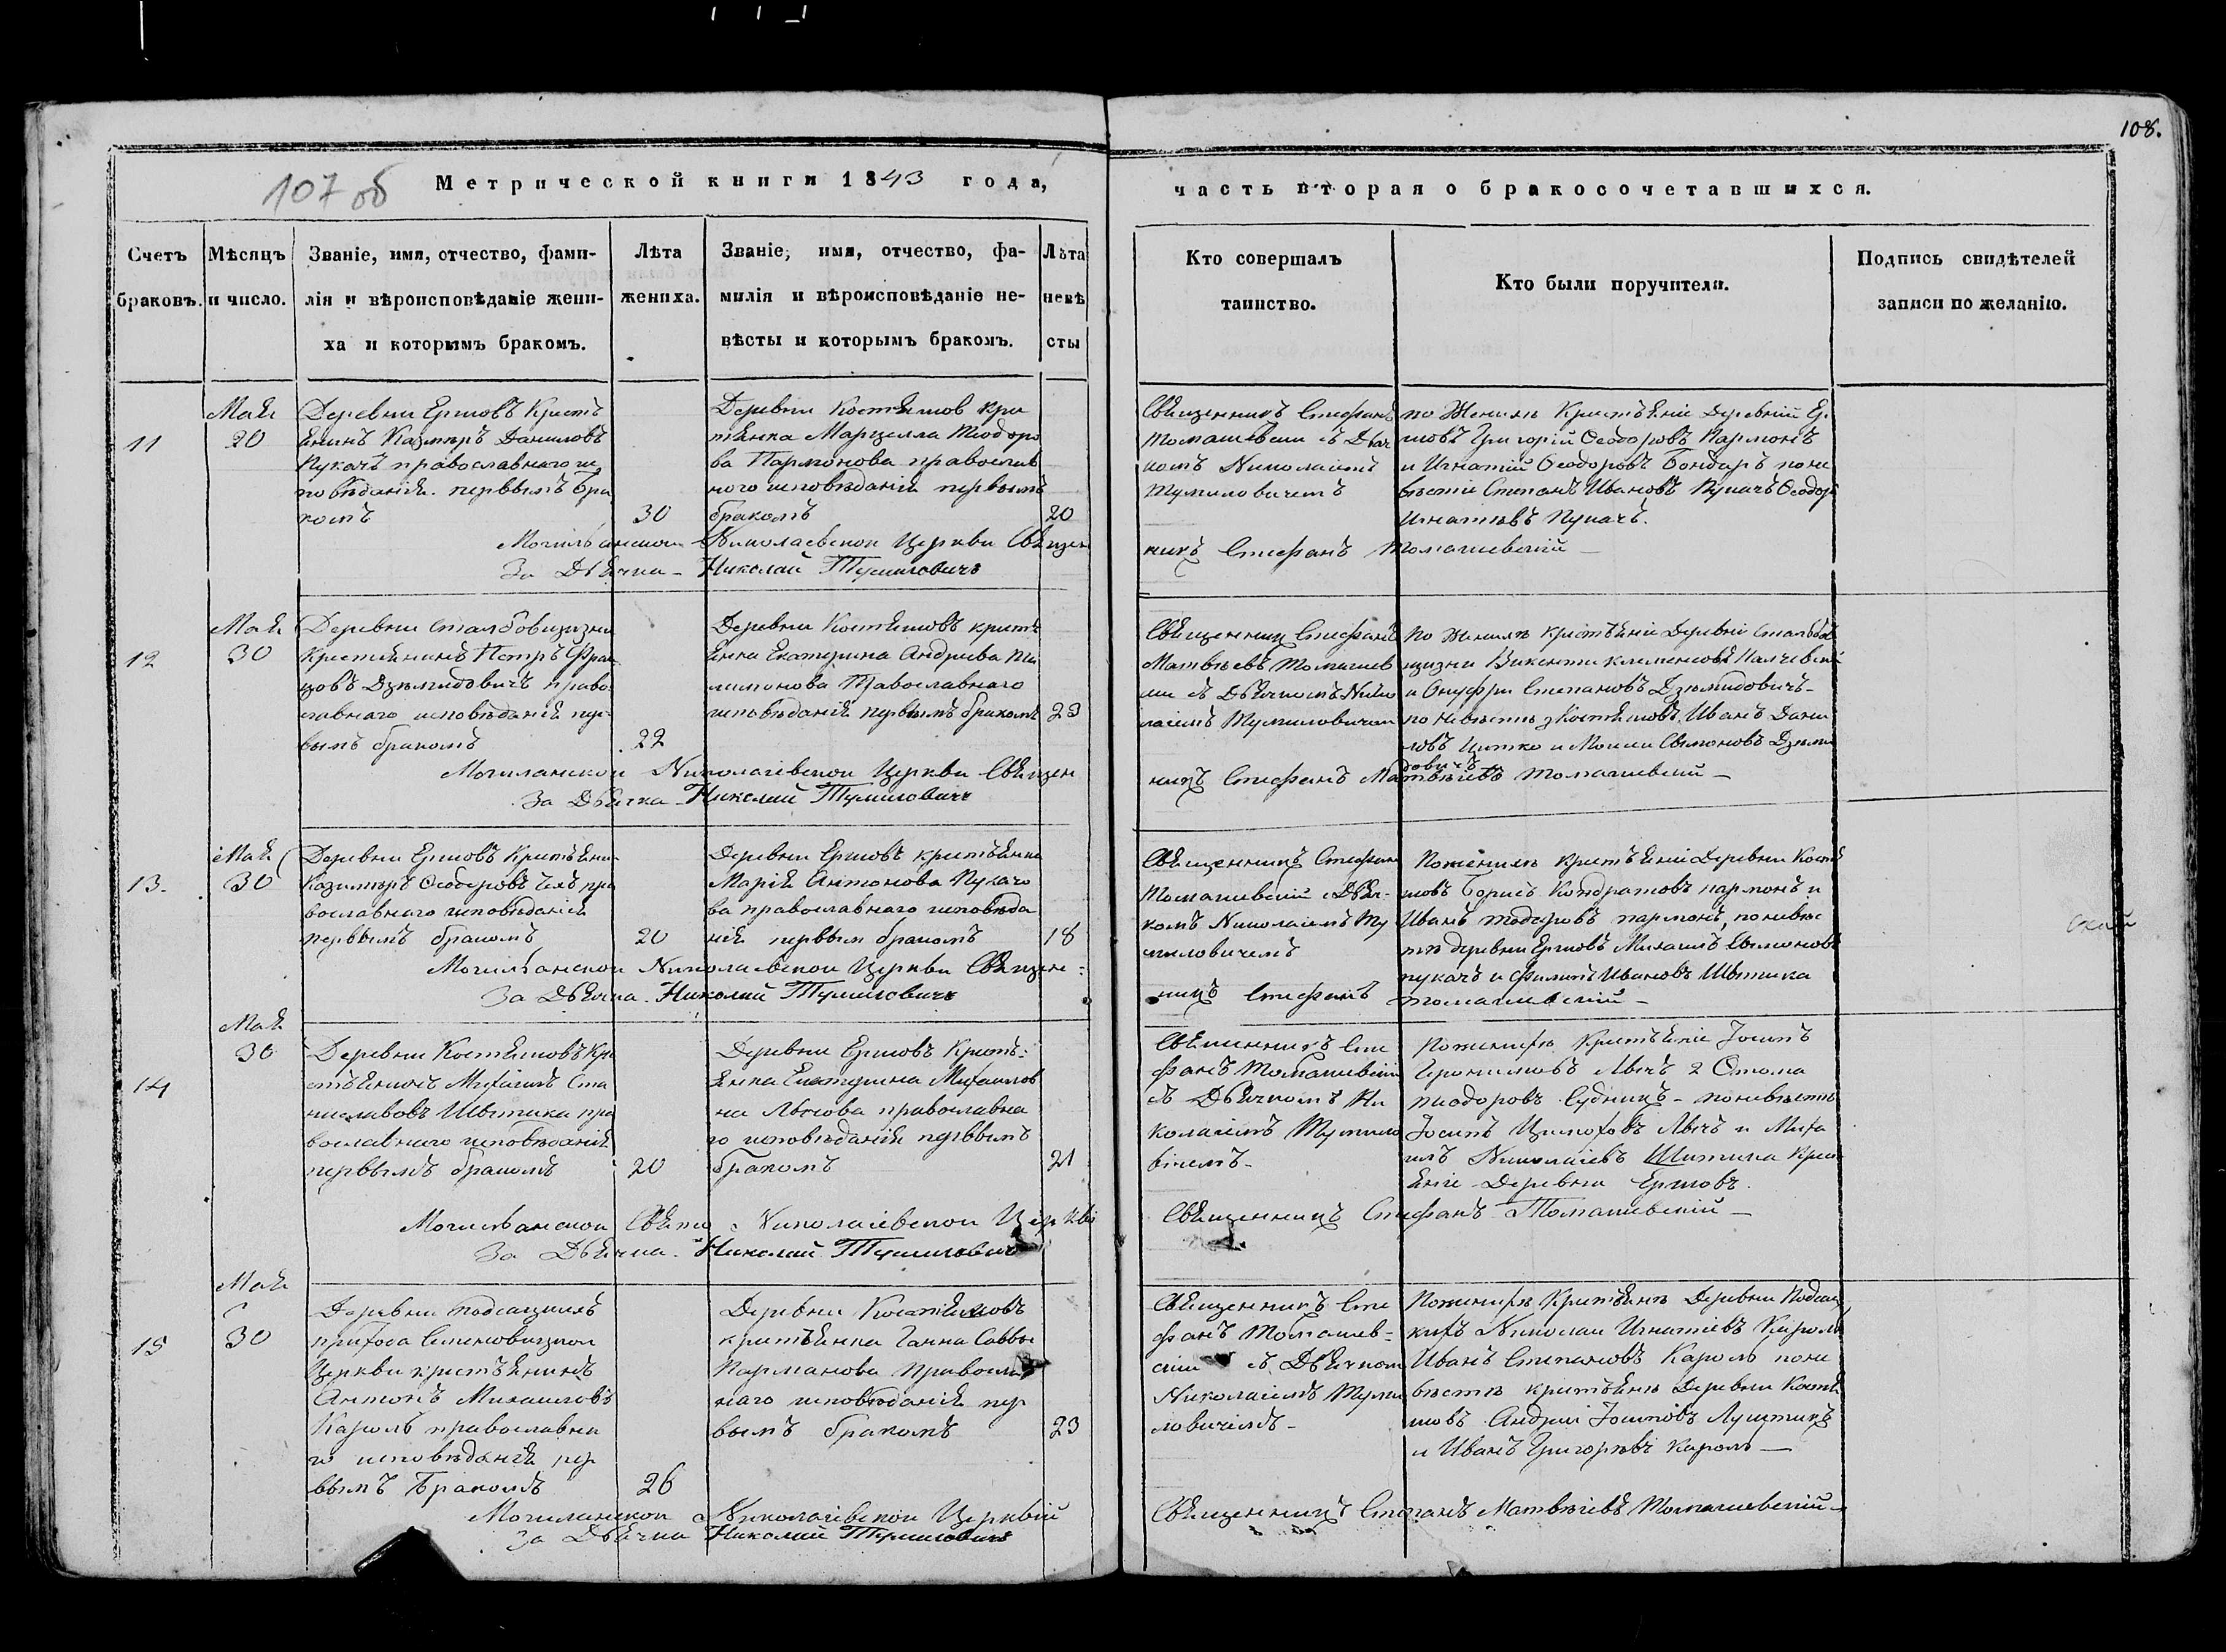 108.
107 об
Метрической книги 1843 года,
часть вторая о бракосочетавшихся.
Счетъ браковъ.
Мѣсяцъ и число.
Званіе, имя, отчество, фами-
лія и вѣроисповѣданіе жени-
ха и которымъ бракомъ.
Лѣта
жениха.
Званіе, имя, отчество, фа-
милія и вѣроисповѣданіе не-
вѣсты и которымъ бракомъ.
Лѣта
невѣ
сты
Кто совершалъ
таинство.
Кто были поручители.
Подпись свидѣтелей
записи по желанію.
11
Мая
20
Деревни Ершовъ Крестъ
янинъ Казимиръ Даниловъ
Пукачъ православнаго ис
повѣданія. первымъ бра
комъ
30
Деревни Костяшов кре
тянка Марцелла Тіодоро
ва Пармонова православ
ного исповѣданія первымъ
бракомъ
20
Священникъ Стефанъ
Томашевски съ Дьяч
комъ Николаемъ
Тумиловичемъ
по Женихе Крестъяніе Деревній Ер
шовъ Григорій Ѳеодоровъ Пармонъ
и Игнатій Ѳеодоровъ Бондаръ поне
вѣстіе Степанъ Ивановъ Пукачъ Ѳеодоръ
Игнатовъ Пукачъ.
Николаевской Церкви Священ
никъ Стефанъ Томашевскій
За Дьячка Николай Тумиловичъ
12
Мая
30
Деревни
крестіянинъ Петръ Фран
цовъ Дземидовичъ право
славнаго исповѣданія пер
вымъ бракомъ
22
Деревни Костяшовъ крестъ
янка Екатерина Андреева
Православнаго
исповѣданія первымъ бракомъ
23
Священникъ Стефанъ
Матвѣевъ Томашев
ски съ Дьячкомъ Нико
лаемъ Тумиловичем
По Женихе крестъяніе Деревні
Викенти Клеменсовъ
и Онуфри Степановъ Дземидовичъ
по невѣсте з Костяшовъ Иванъ Дани
ловъ Цитко и Моисей Сымоновъ Дземи
довичъ
Николаіевской Церкви Священ
никъ Стефанъ Матвѣіевъ Томашевскій
За Дьячка Николай Тумиловичъ
13.
Мая
30
Деревни Ершовъ Крестъяни
Казимиръ Ѳеодоровъ пра
вославнаго исповѣданія
первымъ бракомъ
20
Деревни Ершовъ крестъянка
Марія Антонова Пукачо
ва православнаго исповѣда
нія первым бракомъ
18
Священникъ Стефанъ
Томашевскій съ Дьяч-
комъ Николаемъ Ту
миловичемъ
Поженихе крестъяніе Деревни Костя
шовъ Борисъ Кондратовъ пармонъ и
Иванъ тодоровъ пармонъ, поневѣс
те деревни Ершовъ Михаилъ Сымоновъ
пукачъ и Филипъ Ивановъ
Николаевской Церкви Священ-
никъ Стефанъ Томашевскій
За Дьячка Николай Тумиловичъ
14
Мая
30
Деревни Костяшовъ Кре
стьянинъ Михаилъ Ста
ниславовъ пра
вославнаго исповѣданія
первымъ бракомъ
20
Деревни Ершовъ Крестъ-
янка Екатерина Михаилов
на православна
го исповѣданія первымъ
бракомъ
21
Священникъ Сте
фанъ Томашевскій
съ Дьячкомъ Ни
колаіемъ Тумило
вічемъ
Поженихе Крестъяніе Іосипъ
Поневѣсте
Іосипъ и Миха
илъ Николаіевъ Крест
яніе Деревни Ершовъ
Свято Николаіевской Церкви
Священникъ Стефанъ Томашевскій
За Дьячка Николай Тумиловичъ
15
Мая
30
Деревни
прихода Семеновицкой
Церкви крестъянинъ
Антонъ Михаиловъ
Кароль православна
го исповѣданія пер
вымъ Бракомъ
26
Деревни Костяшовъ
крестъянка Ганна Савви
Парманова Православ
наго исповѣданія пер
вымъ бракомъ
23
Священникъ Сте
фанъ Томашев-
скій съ Дьячком
Николаіемъ Туми
ловичемъ
Поженихѣ Крестьяне Деревни
Николаи Игнатіевъ Кароль
Иванъ Степановъ Кароль поне
вѣсте крестъяне Деревни Костя
шовъ Андреи Іосиповъ
и Иванъ Григорьевъ Кароль
Николаіевской Церквій
Священникъ Стефанъ Матвѣіевъ Томашевскій
За Дьячка Николай Тумиловичъ